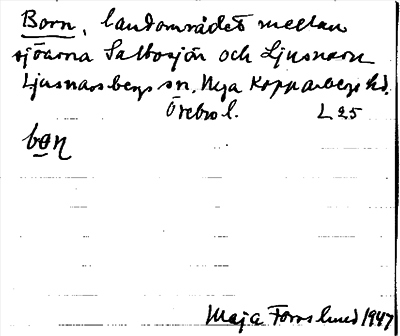 Born, landområdet mellan
sjöarna Salbosjön och Ljusnaren
Ljusnarsbergs sn, Nya Kopparbergs hd.
Örebro l. L 25
bøn
Maja Forsslund 1947